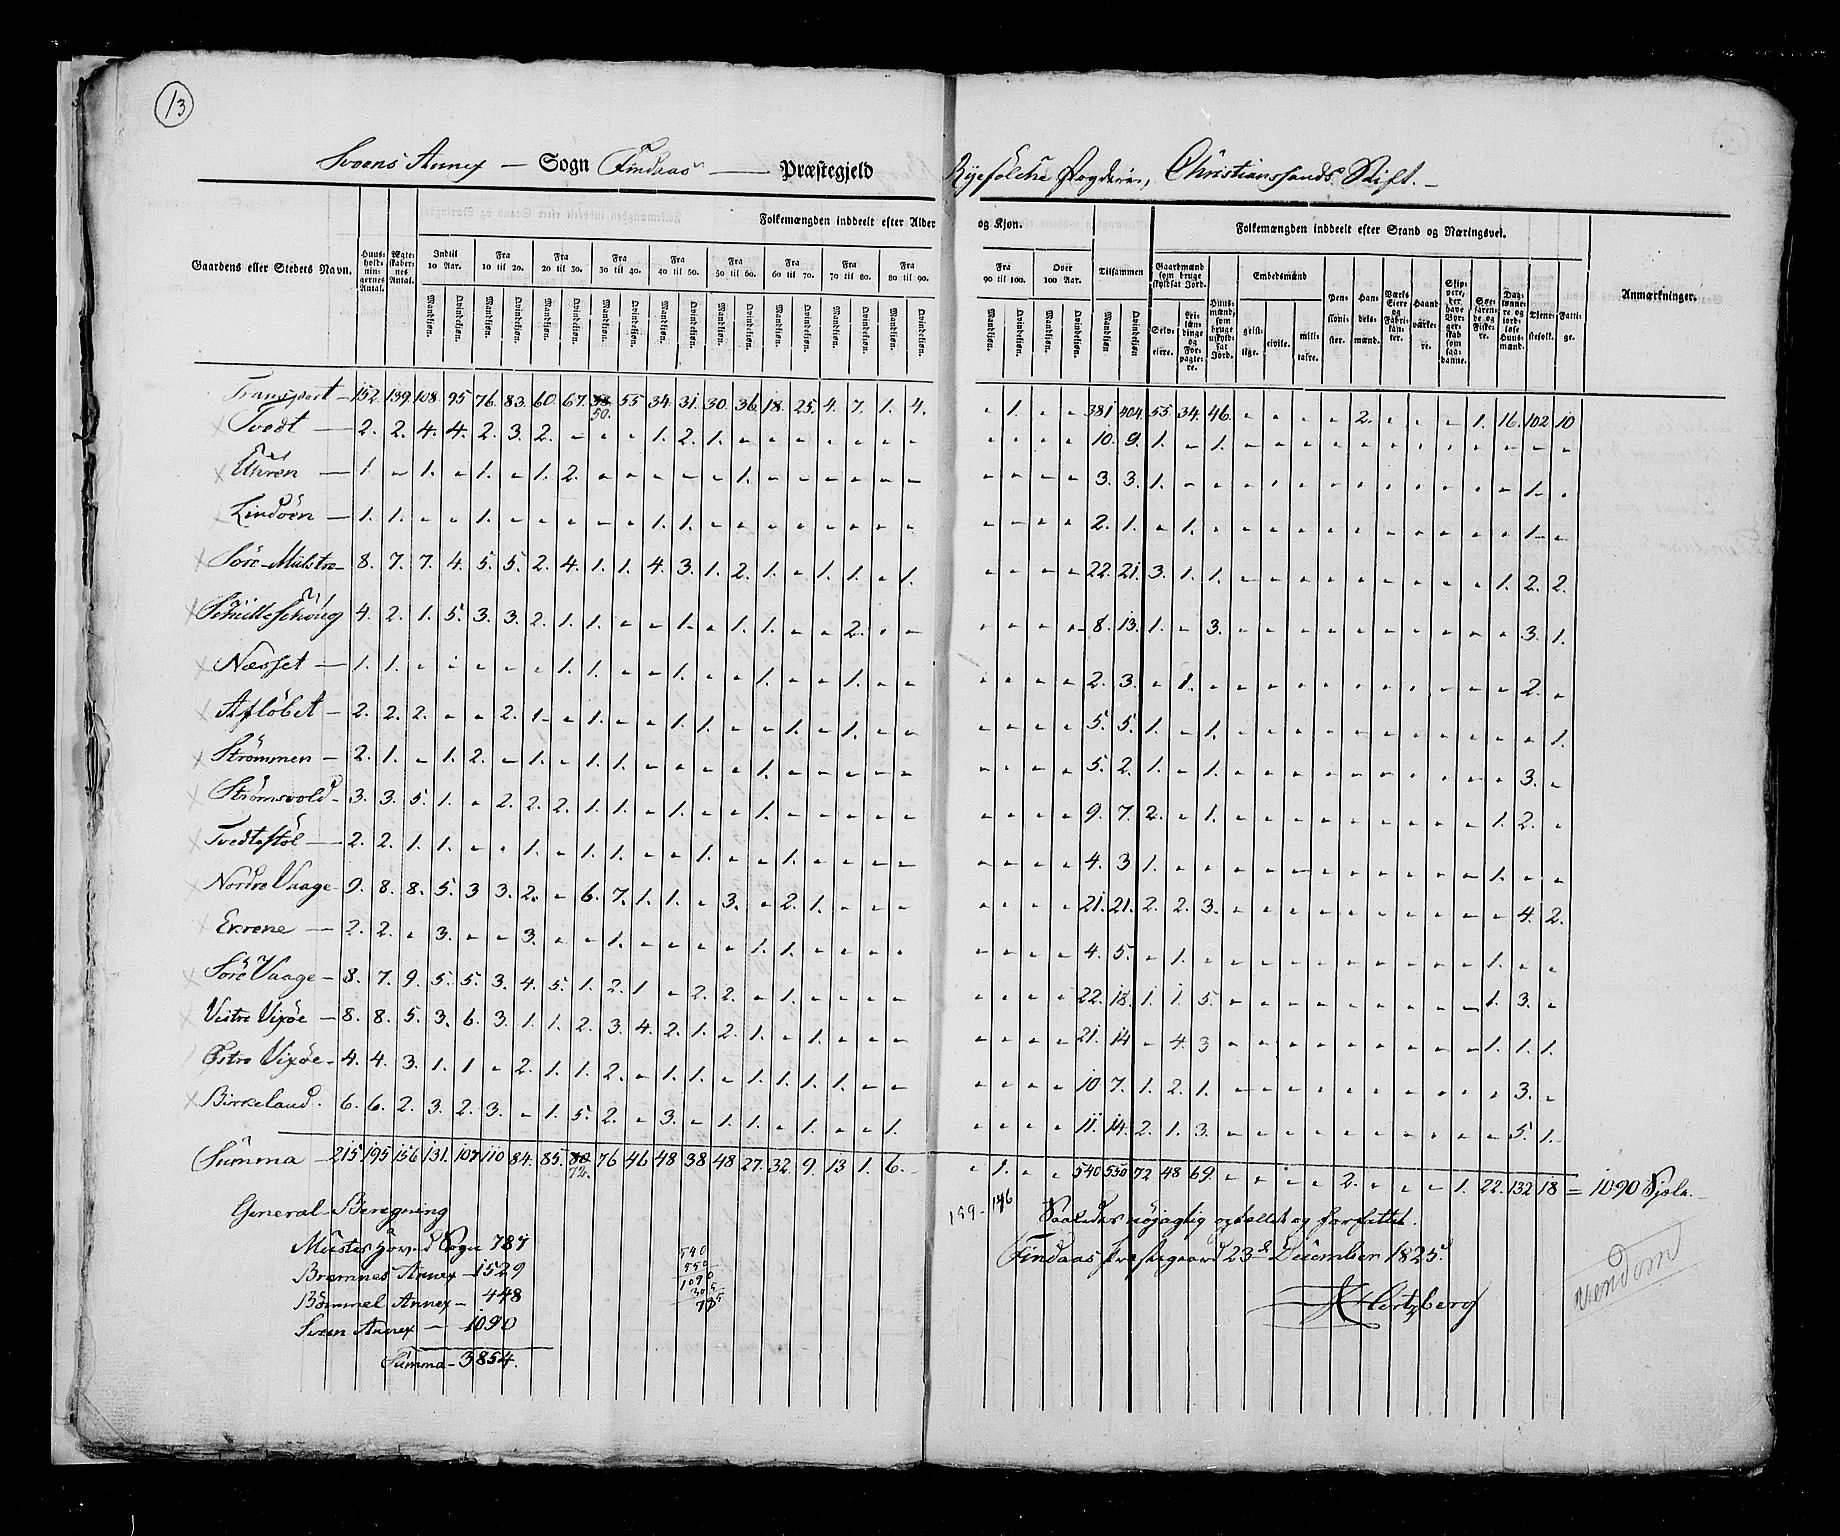 13
Svoens Annex — Sogn Findaas — Præstegjeld Ryefølche Fogderie, Christianssands Stift. —
Folkemængden inddeelt efter Alder og Kjøn. Folkemængden inddeelt efter Stand og Næringsvei.
Gaardens eller Stedets Navn. Huusholdningernes Antal. Ægteskabernes Antal. Indtil 10 Aar. Fra 10 til 20. Fra 20 til 30. Fra 30 til 40. Fra 40 til 50. Fra 50 til 60. Fra 60 til 70. Fra 70 til 80. Fra 80 til 90. Fra 90 til 100. Over 100 Aar. Tilsammen Gaardmænd som bruge skyldsat Jord. Huusmænd, som bruge uskyldsat Jord. Embedsmænd Pensionister. Handelsmænd. Værks Eiere og Fabrikanter. Haandværkere. Skippere, der have Borgerskab som saadanne. Søefarende og Fiskere. Daglønnere og jordløse Huusmænd. Tjenestefolk. Fattige. Anmærkninger.
Mandkjøn. Qvindekjøn. Mandkjøn. Qvindekjøn. Mandkjøn. Qvindekjøn. Mandkjøn. Qvindekjøn. Mandkjøn. Qvindekjøn. Mandkjøn. Qvindekjøn. Mandkjøn. Qvindekjøn. Mandkjøn. Qvindekjøn. Mandkjøn. Qvindekjøn. Mandkjøn. Qvindekjøn. Mandkjøn. Qvindekjøn. Mandkjøn. Qvindekjøn Selveiere. Leilændinge og Forpagtere. geistlige. civile. militaire.
Transport — 152. 139. 108. 95. 76. 83. 60. 67. 50. 55. 34. 31. 30. 36. 18. 25. 4. 7. 1. 4. „ 1. „ „ 381 404. 55 34. 46. „ „ „ „ 2. „ „ „ 1. 16. 102 10
Tvedt — 2. 2. 4. 4. 2. 3. 2. „ „ „ 1. 2. 1. „ „ „ „ „ „ „ „ „ „ „ 10. 9. 1. „ 1. „ „ „ „ „ „ „ „ „ „ „ „
Uhren — 1. „ 1. „ 1. „ 1. 2. „ „ „ „ „ 1. „ „ „ „ „ „ „ „ „ „ 3. 3. 1. „ „ „ „ „ „ „ „ „ „ „ „ 1. „
Lindøen — 1. 1. „ „ 1. „ „ „ „ „ 1. 1. „ „ „ „ „ „ „ „ „ „ „ „ 2. 1. „ 1. „ „ „ „ „ „ „ „ „ „ „ 1. „
Søre-Mülstre 8. 7. 7. 4. 5. 5. 2. 4. 1. 1. 4. 3. 1. 2. 1. „ 1. 1. „ 1. „ „ „ „ 22. 21. 3. 1. 1. „ „ „ „ „ „ „ „ „ 1. 2. 2.
4. 2. 1. 5. 3. 3. 2. 1. 1. „ „ 1. „ 1. 1. „ „ 2. „ „ „ „ „ „ 8. 13. 1. „ 3. „ „ „ „ „ „ „ „ „ „ 3. 1.
Næsset — 1. 1. „ „ „ „ „ 1. 1. „ „ 1. „ „ 1. „ „ 1. „ „ „ „ „ „ 2. 3. „ 1. „ „ „ „ „ „ „ „ „ „ „ 2. „
Afløbet — 2. 2. 2. „ „ 2. 1. „ 1. „ „ 1. 1. „ „ 1. „ 1. „ „ „ „ „ „ 5. 5. 1. „ 1. „ „ „ „ „ „ „ „ „ „ „ 1.
Strømmen — 2. 1. „ 1. 2. „ 1. „ 1. 1. „ „ „ „ 1. „ „ „ „ „ „ „ „ „ 5. 2. 1. „ 1. „ „ „ „ „ „ „ „ „ „ 3. „
Strømsvold 3. 3. 5. 1. „ 2. 2. 2. 1. 1. „ 1. „ „ 1. „ „ „ „ „ „ „ „ „ 9. 7. 2. „ 1. „ „ „ „ „ „ „ „ „ 1. 2. „
Tvedtestøl — 2. 2. 1. 1. „ „ 1. „ 1. 1. „ „ 1. „ „ 1. „ „ „ „ „ „ „ „ 4. 3 1. „ „ „ „ „ „ „ „ „ „ „ 1. „ „
Nordre Vaage 9. 8. 8. 5. 3 3. 2. „ 6. 7. 1. 1. „ 3. „ 2. 1. „ „ „ „ „ „ „ 21. 21. 2. 2. 3. „ „ „ „ „ „ „ „ „ „ 4. 2.
Ekrene — 2. 2. „ 3. „ „ 3. „ „ 1. „ „ „ „ 1. 1. „ „ „ „ „ „ „ „ 4. 5. „ 1. „ „ „ „ „ „ „ „ „ „ 1. „ „
Søre Vaage — 8. 7. 9. 5. 5. 3. 4. 5. 1. 2. 1 „ 2. 2. „ 1. „ „ „ „ „ „ „ „ 22. 18. 1. 1. 5. „ „ „ „ „ „ „ „ „ 1. 3. „
Vestre Vixøe — 8. 8. 5. 3. 6. 3. 1. 1. 2. 3. 4. 2. 1. 2. 1. „ 1. „ „ „ „ „ „ „ 21. 14 „ 4. 3 „ „ „ „ „ „ „ „ „ 1. 1. 1.
Østre Vixøe 4. 4. 3. 1. 1 „ 2. 1. 1. 2. „ 1. 1. „ 1. 1. 1. „ „ „ „ „ „ „ 10 7. 1. 2. 1. „ „ „ „ „ „ „ „ „ „ 3. „
Birkeland. 6. 6. 2. 3. 2. 3. „ 1. 5. 2. „ 3. „ 1. 1. „ 1. „ „ 1. „ „ „ „ 11. 14. 2. 1. 3. „ „ „ „ „ „ „ „ „ „ 5. 1.
Summa — 215. 195 156 131. 107 110 84. 85. 72. 76 46 48 38 48 27. 32. 9. 13 1. 6. „ 1. „ „ 540 550 72 48 69. „ „ „ „ 2. „ „ „ 1. 22. 132 18 = 1090 Siæle.
General-Beregning
Müsters Hoved Sogn 787
Bremnes Annex — 1529
Bømmel Annex — 448
Svoen Annex — 1090
Summa — 3854.
540
550
1090
305
785
159 - 146
Saaledes nøjagtig optallet og forfattet.
Findaas Præstegaard 23d December 1825.
Hertzberg